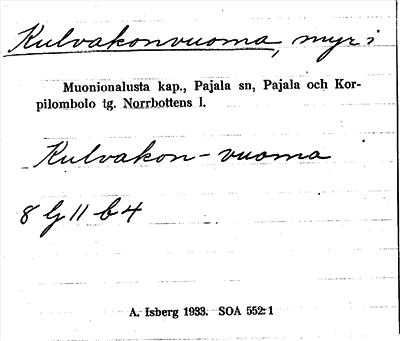 Kulvakonvuoma, myr i
Muonionalusta kap., Pajala sn, Pajala och Kor-
pilombolo tg. Norrbottens l.
Kulvakon-vuoma
8 G 11 b 4
A. Isberg 1933. SOA 552:1